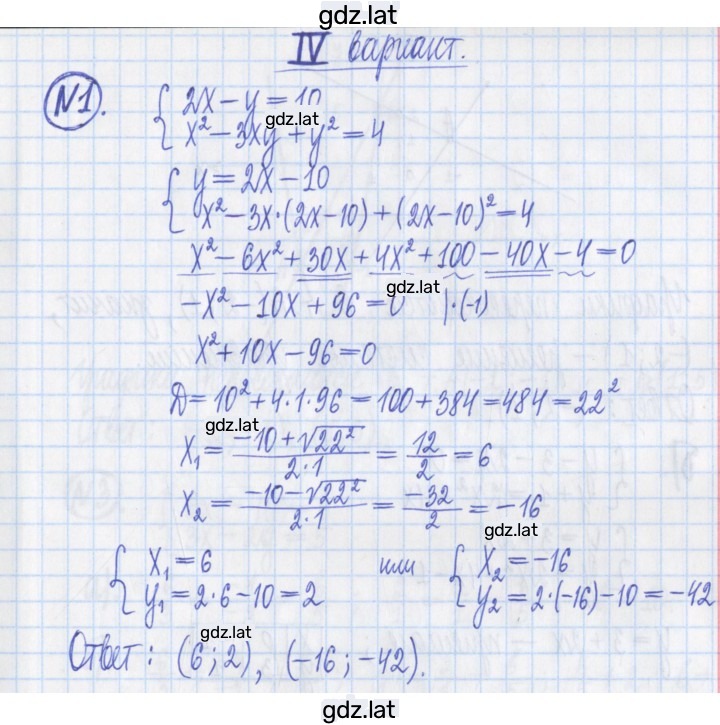 gdz.lat
IV вариант.
№1. { 2x - y = 10
gdz.lat
x² - 3xy + y² = 4
{ y = 2x - 10
x² - 3x·(2x-10) + (2x-10)² = 4
x² - 6x² + 30x + 4x² + 100 - 40x - 4 = 0
gdz.lat
-x² - 10x + 96 = 0 |·(-1)
x² + 10x - 96 = 0
Д = 10² + 4·1·96 = 100 + 384 = 484 = 22²
gdz.lat
x₁ = (-10 + √22²)/(2·1) = 12/2 = 6
x₂ = (-10 - √22²)/(2·1) = -32/2 = -16
gdz.lat
{ x₁ = 6 или { x₂ = -16
y₁ = 2·6 - 10 = 2 y₂ = 2·(-16) - 10 = -42
gdz.lat
Ответ: (6; 2), (-16; -42).
gdz.lat